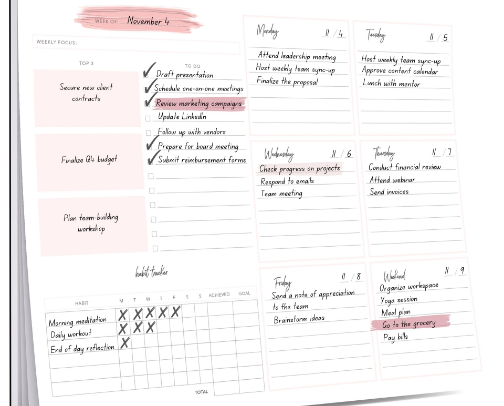 WEEK OF: November 4
WEEKLY FOCUS:
TOP 3
Secure new client
contracts
Finalize Q4 budget
Plan team-building
workshop
TO DO
Draft presentation
Schedule one-on-one meetings
Review marketing campaigns
Update LinkedIn
Follow up with vendors
Prepare for board meeting
Submit reimbursement forms
Monday 11 / 4
Attend leadership meeting
Host weekly team sync-up
Finalize the proposal
Tuesday 11 / 5
Host weekly team sync-up
Approve content calendar
Lunch with mentor
Wednesday 11 / 6
Check progress on projects
Respond to emails
Team meeting
Thursday 11 / 7
Conduct financial review
Attend webinar
Send invoices
habit tracker
HABIT M T W T F S S ACHIEVED GOAL
Morning meditation X X X X X
Daily workout X X X
End of day reflection X
TOTAL
Friday 11 / 8
Send a note of appreciation
to the team
Brainstorm ideas
Weekend 11 / 9
Organize workspace
Yoga session
Meal plan
Go to the grocery
Pay bills